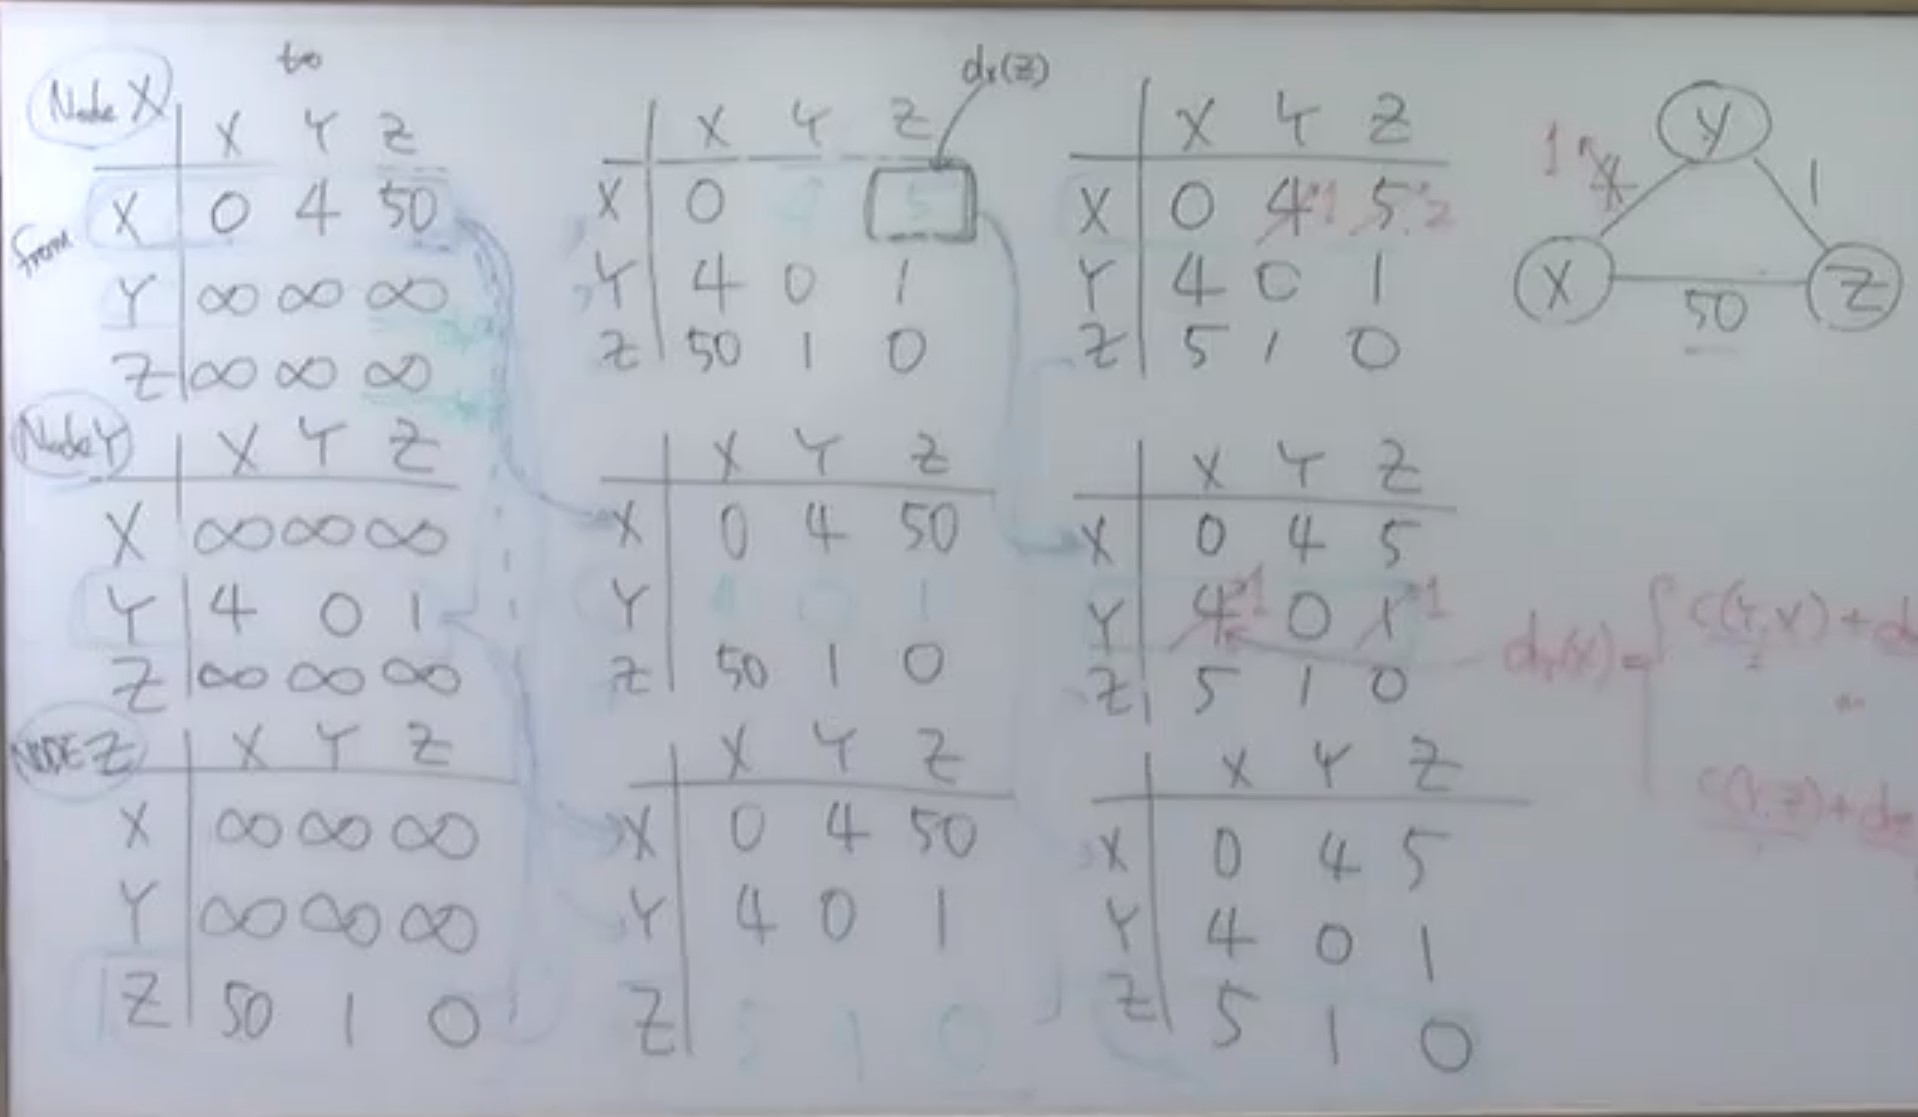 to
Node X
X Y Z
from
X 0 4 50
Y ∞ ∞ ∞
Z ∞ ∞ ∞
Node Y
X Y Z
X ∞ ∞ ∞
Y 4 0 1
Z ∞ ∞ ∞
NODE Z
X Y Z
X ∞ ∞ ∞
Y ∞ ∞ ∞
Z 50 1 0
dx(z)
X Y Z
X 0 4 5
Y 4 0 1
Z 50 1 0
X Y Z
X 0 4 50
Y 4 0 1
Z 50 1 0
X Y Z
X 0 4 50
Y 4 0 1
Z 5 1 0
X Y Z
X 0 4 1 5 2
Y 4 0 1
Z 5 1 0
X Y Z
X 0 4 5
Y 4 1 0 1 1
Z 5 1 0
X Y Z
X 0 4 5
Y 4 0 1
Z 5 1 0
Y
1 4 1
X Z
50
dY(X) =
C(Y,X) + d
C(Y,Z) + dz